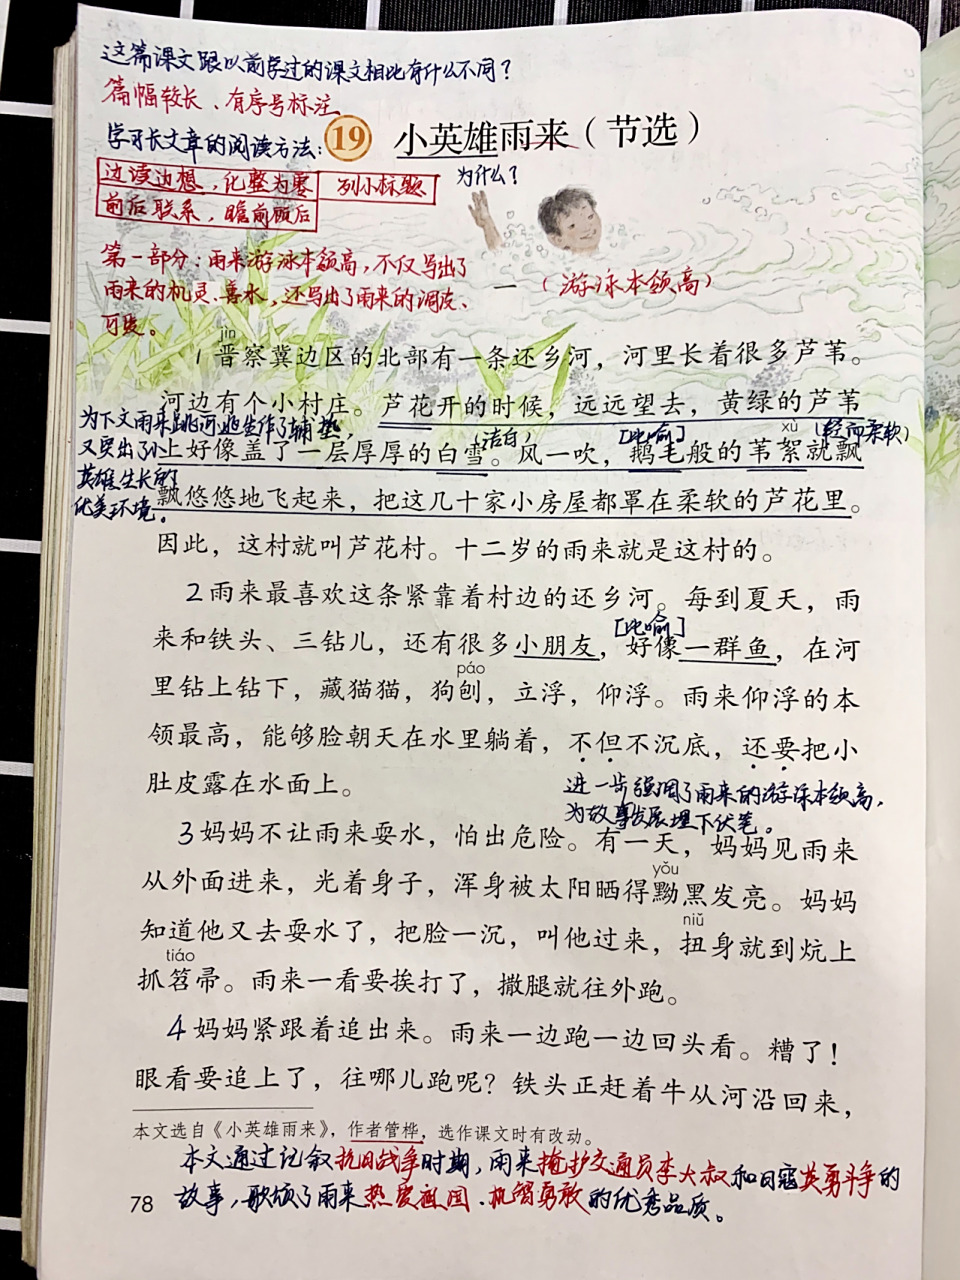 这篇课文跟以前学过的课文相比有什么不同？
篇幅较长、有序号标注、
学习长文章的阅读方法：
19 小英雄雨来（节选）
边读边想，化整为零 列小标题
前后联系，瞻前顾后
为什么？
第一部分：雨来游泳本领高，不仅写出了
雨来的机灵、喜水，还写出了雨来的调皮、
可爱。
一（游泳本领高）
jìn
1晋察冀边区的北部有一条还乡河，河里长着很多芦苇。
河边有个小村庄。芦花开的时候，远远望去，黄绿的芦苇
为下文雨来跳河逃生作了辅垫，
又突出了小
英雄生长的
优美环境。
（洁白） [比喻] xù （轻而柔软）
上好像盖了一层厚厚的白雪。风一吹，鹅毛般的苇絮就飘
飘悠悠地飞起来，把这几十家小房屋都罩在柔软的芦花里。
因此，这村就叫芦花村。十二岁的雨来就是这村的。
2雨来最喜欢这条紧靠着村边的还乡河。每到夏天，雨
[比喻]
来和铁头、三钻儿，还有很多小朋友，好像一群鱼，在河
páo
里钻上钻下，藏猫猫，狗刨，立浮，仰浮。雨来仰浮的本
领最高，能够脸朝天在水里躺着，不但不沉底，还要把小
肚皮露在水面上。
进一步强调了雨来的游泳本领高，
为故事发展埋下伏笔。
3妈妈不让雨来耍水，怕出危险。有一天，妈妈见雨来
yǒu
从外面进来，光着身子，浑身被太阳晒得黝黑发亮。妈妈
niǔ
知道他又去耍水了，把脸一沉，叫他过来，扭身就到炕上
tiáo
抓笤帚。雨来一看要挨打了，撒腿就往外跑。
4妈妈紧跟着追出来。雨来一边跑一边回头看。糟了！
眼看要追上了，往哪儿跑呢？铁头正赶着牛从河沿回来，
本文选自《小英雄雨来》，作者管桦，选作课文时有改动。
本文通过记叙抗日战争时期，雨来掩护交通员李大叔和日寇英勇斗争的
故事，歌颂了雨来热爱祖国、机智勇敢的优秀品质。
78